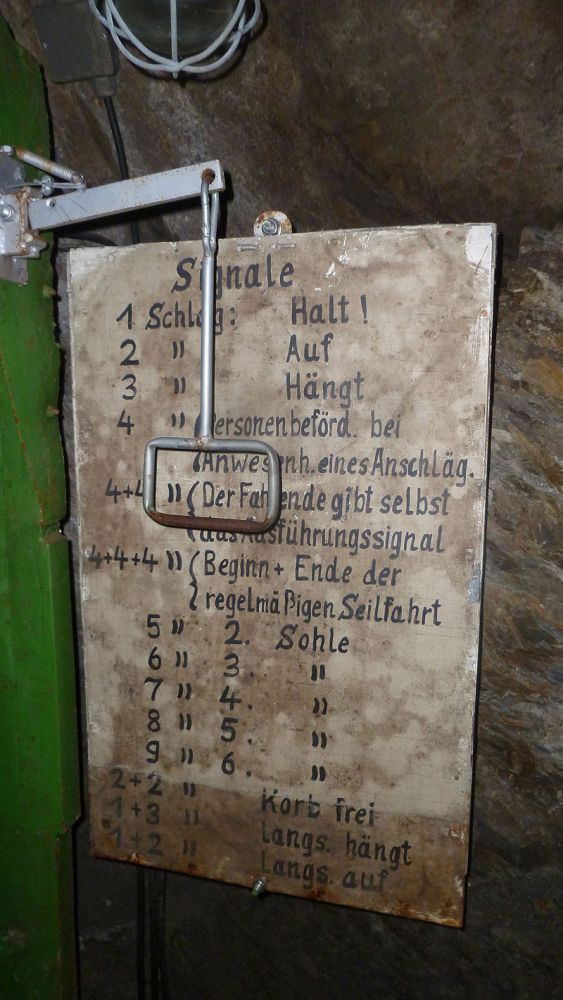 Signale
1 Schlag: Halt!
2 " Auf
3 " Hängt
4 " Personenbeförd. bei
Anwesenh. eines Anschläg.
4+4 " Der Fahrende gibt selbst
das Ausführungssignal
4+4+4 " Beginn + Ende der
regelmäßigen Seilfahrt
5 " 2. Sohle
6 " 3. "
7 " 4. "
8 " 5. "
9 " 6. "
2+2 " Korb frei
1+3 " langs. hängt
1+2 " langs. auf